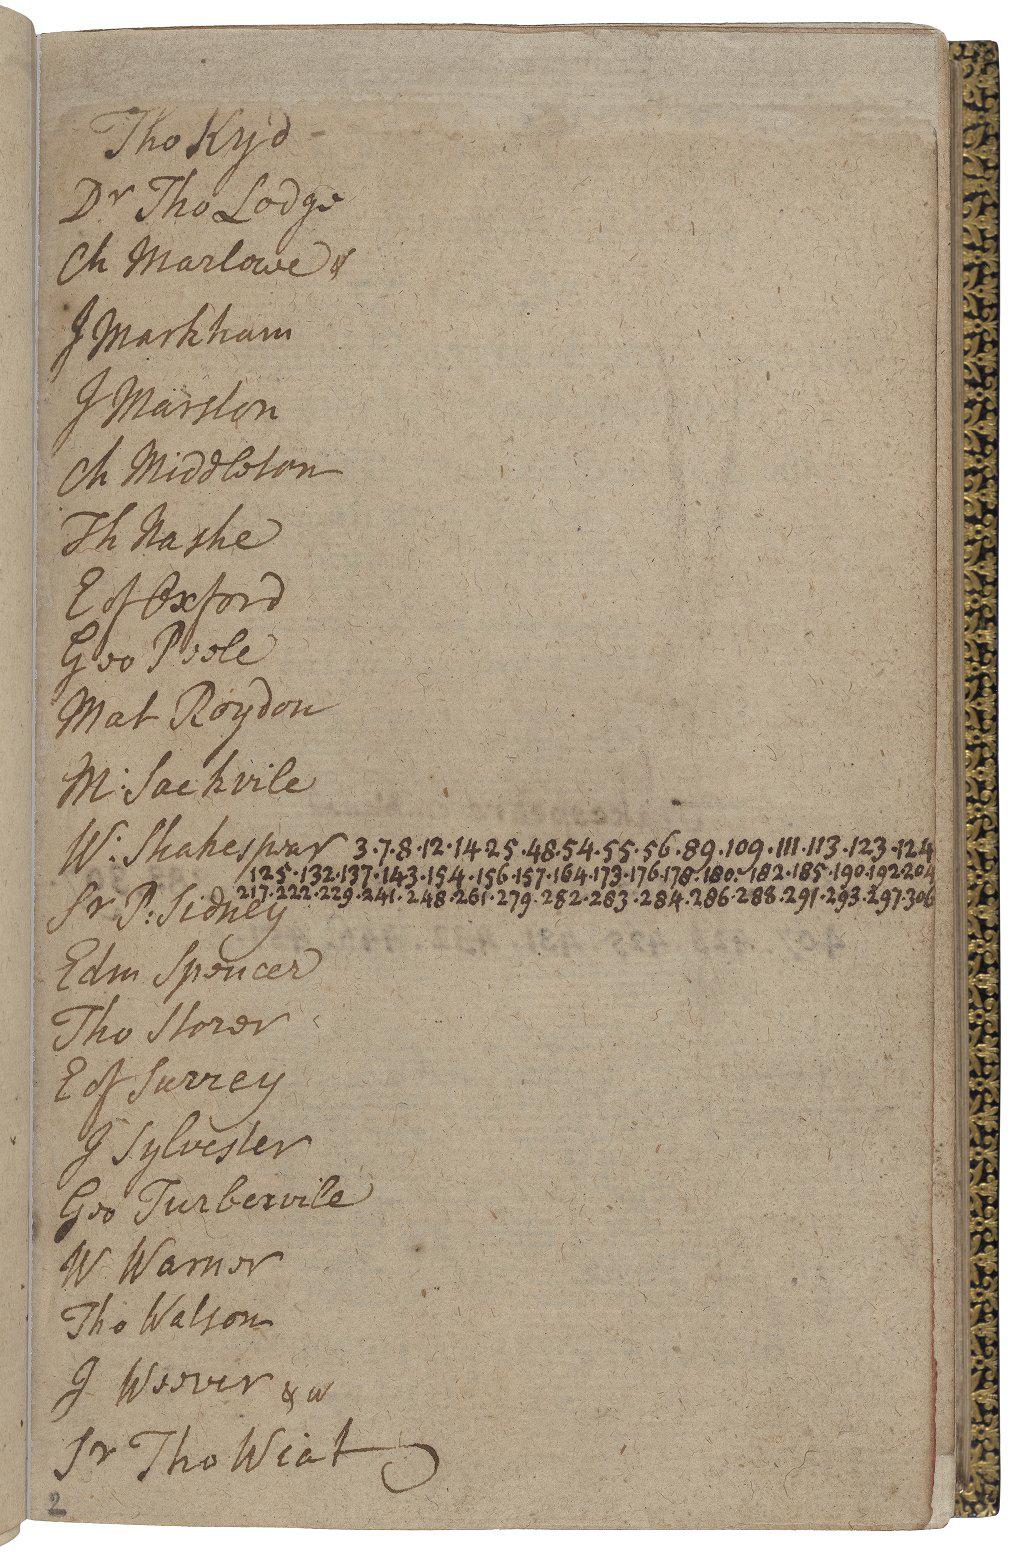 Tho Kyd
Dr Tho Lodge
Ch Marlowe
J Markham
J Marston
Ch Middleton
Th Nashe
E of Oxford
Geo Peele
Mat Roydon
M: Sackvile
W: Shakespear 3·7·8·12·14 25·48·54·55·56·89·109·111·113·123·124
125·132·137·143·154·156·157·164·173·176·178·180·182·185·190·192·204
217·222·229·241·248·261·279·282·283·284·286·288·291·293·297·306
Sr P: Sidney
Edm Spencer
Tho Storer
E of Surrey
J Sylvester
Geo Turbervile
W Warner
Tho Watson
J Weever & w
Sr Tho Wiat
2